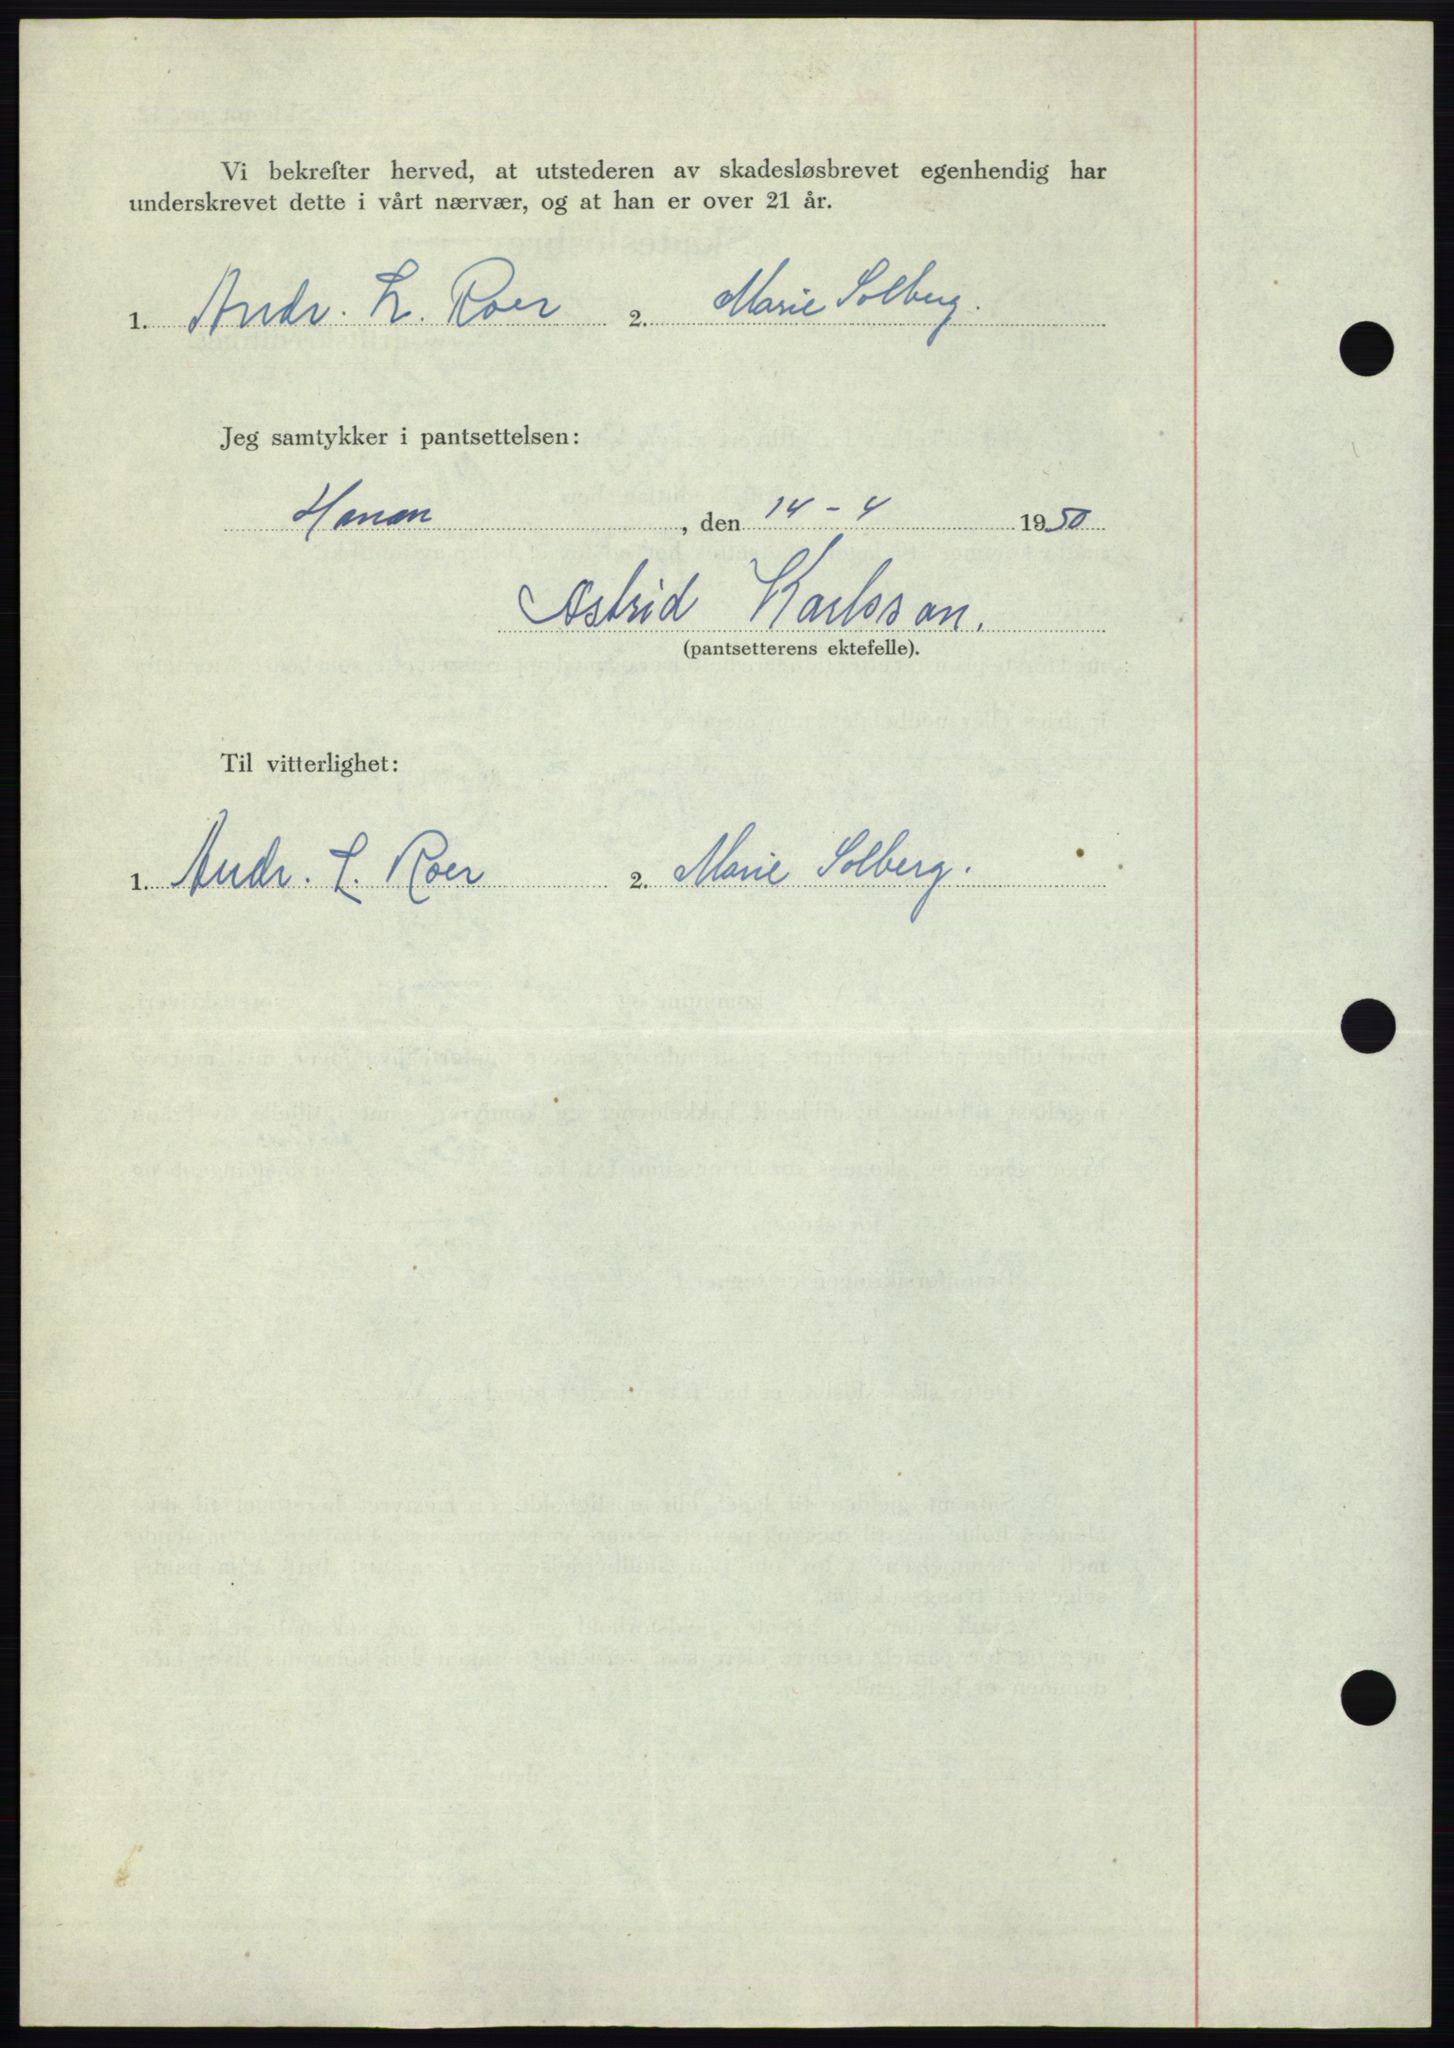 Vi bekrefter herved, at utstederen av skadesløsbrevet egenhendig har
underskrevet dette i vårt nærvær, og at han er over 21 år.
1. Andr. L. Roer 2. Marie Solberg.
Jeg samtykker i pantsettelsen:
Hanan, den 14 - 4 1950
Astrid Karlsson.
(pantsetterens ektefelle).
Til vitterlighet:
1. Andr. L. Roer 2. Marie Solberg.